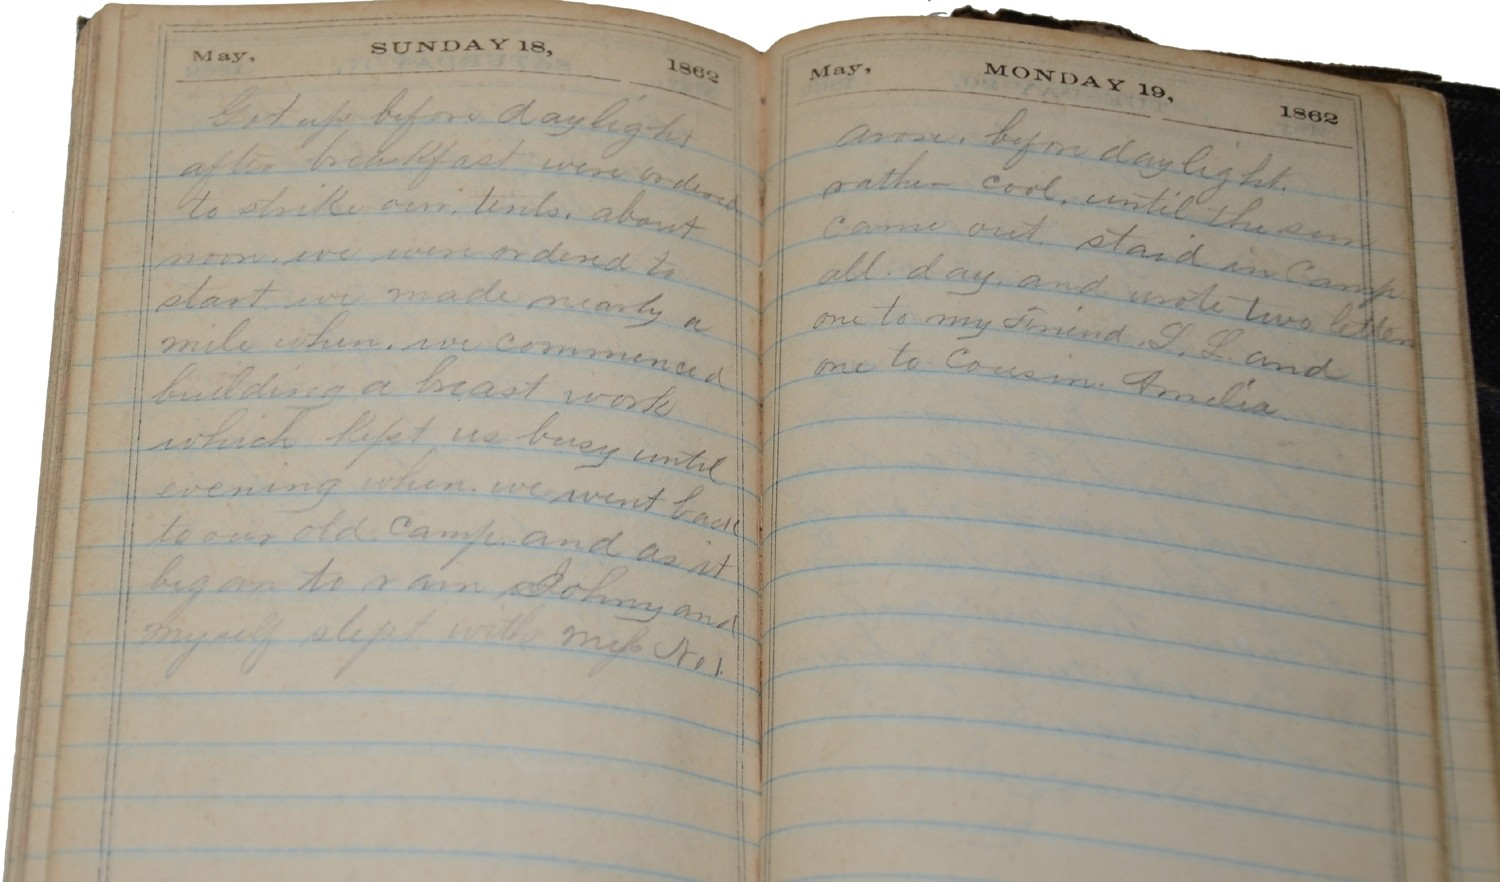 May, SUNDAY 18, 1862
Got up before daylight
after breakfast were ordered
to strike our. tents. about
noon. we were ordered to
start we made nearly a
mile when. we commenced
building a breast work
which kept us busy until
evening when. we went back
to our old. Camp. and as it
began to rain Johny and
myself slept with mess No 1.
May, MONDAY 19, 1862
arose. before daylight.
rather cool. until the sun
came out. staid in Camp
all. day. and wrote two letters
one to my Friend. L. L. and
one to Cousin. Amelia